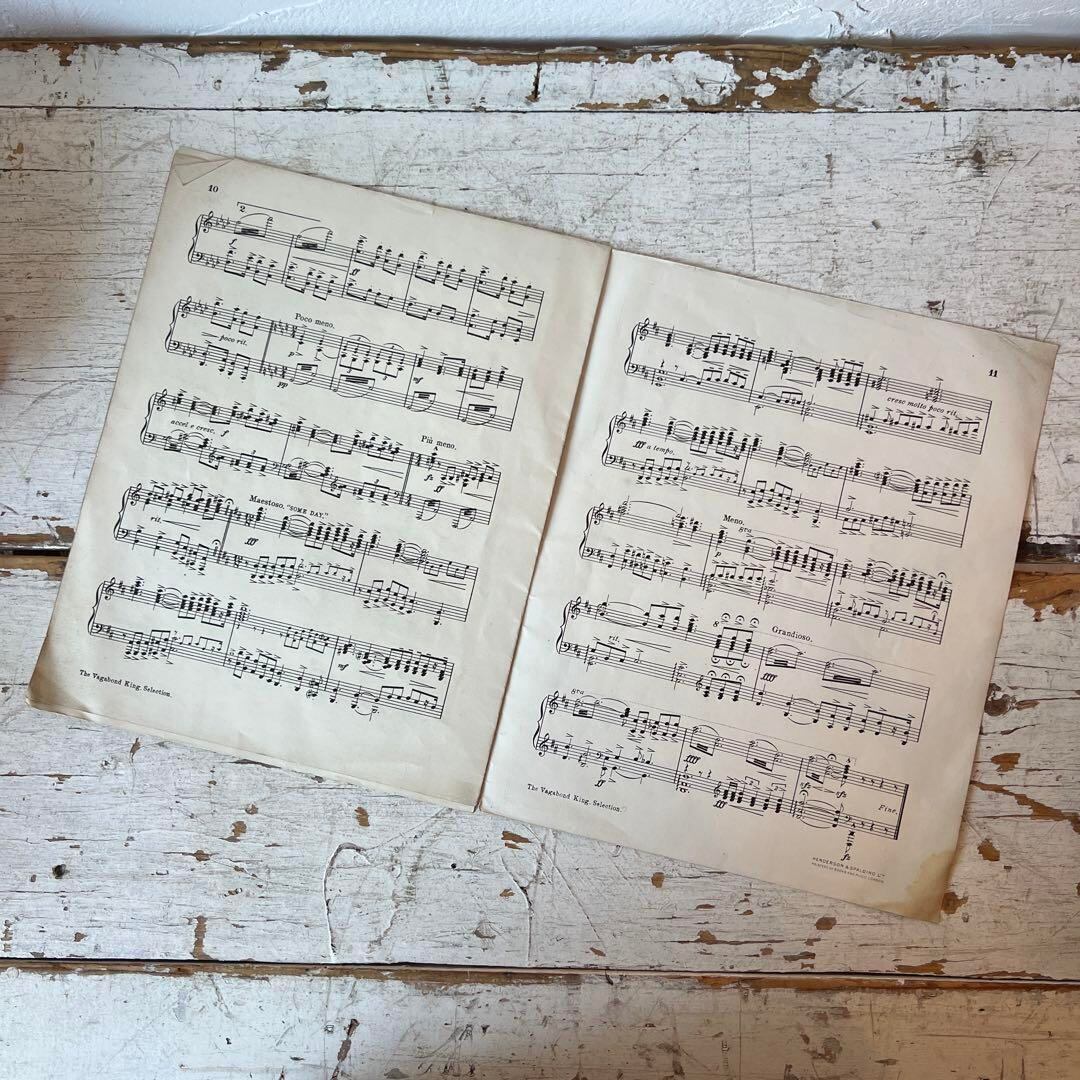 10
2
f
ff
Poco meno.
poco rit.
p
mf
pp
accel e cresc.
f
Più meno.
fz
ff
Maestoso. "SOME DAY."
rit.
fff
mf
The Vagabond King. Selection.
11
cresc molto poco rit.
fff a tempo.
Meno.
8va
p
rit.
8
Grandioso.
fff
8va
ff
fff
sfz
sfz
Fine.
fz
The Vagabond King. Selection.
HENDERSON & SPALDING LTD
PRINTERS OF BOOKS AND MUSIC LONDON